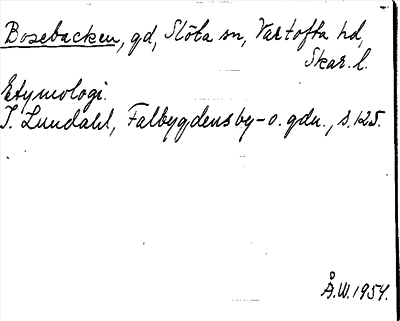 Bosebacken, gd, Slöta sn, Vartofta hd,
Skar. l.
Etymologi.
I. Lundahl, Falbygdens by- o. gdn., s. 125.
Å.W. 1954.